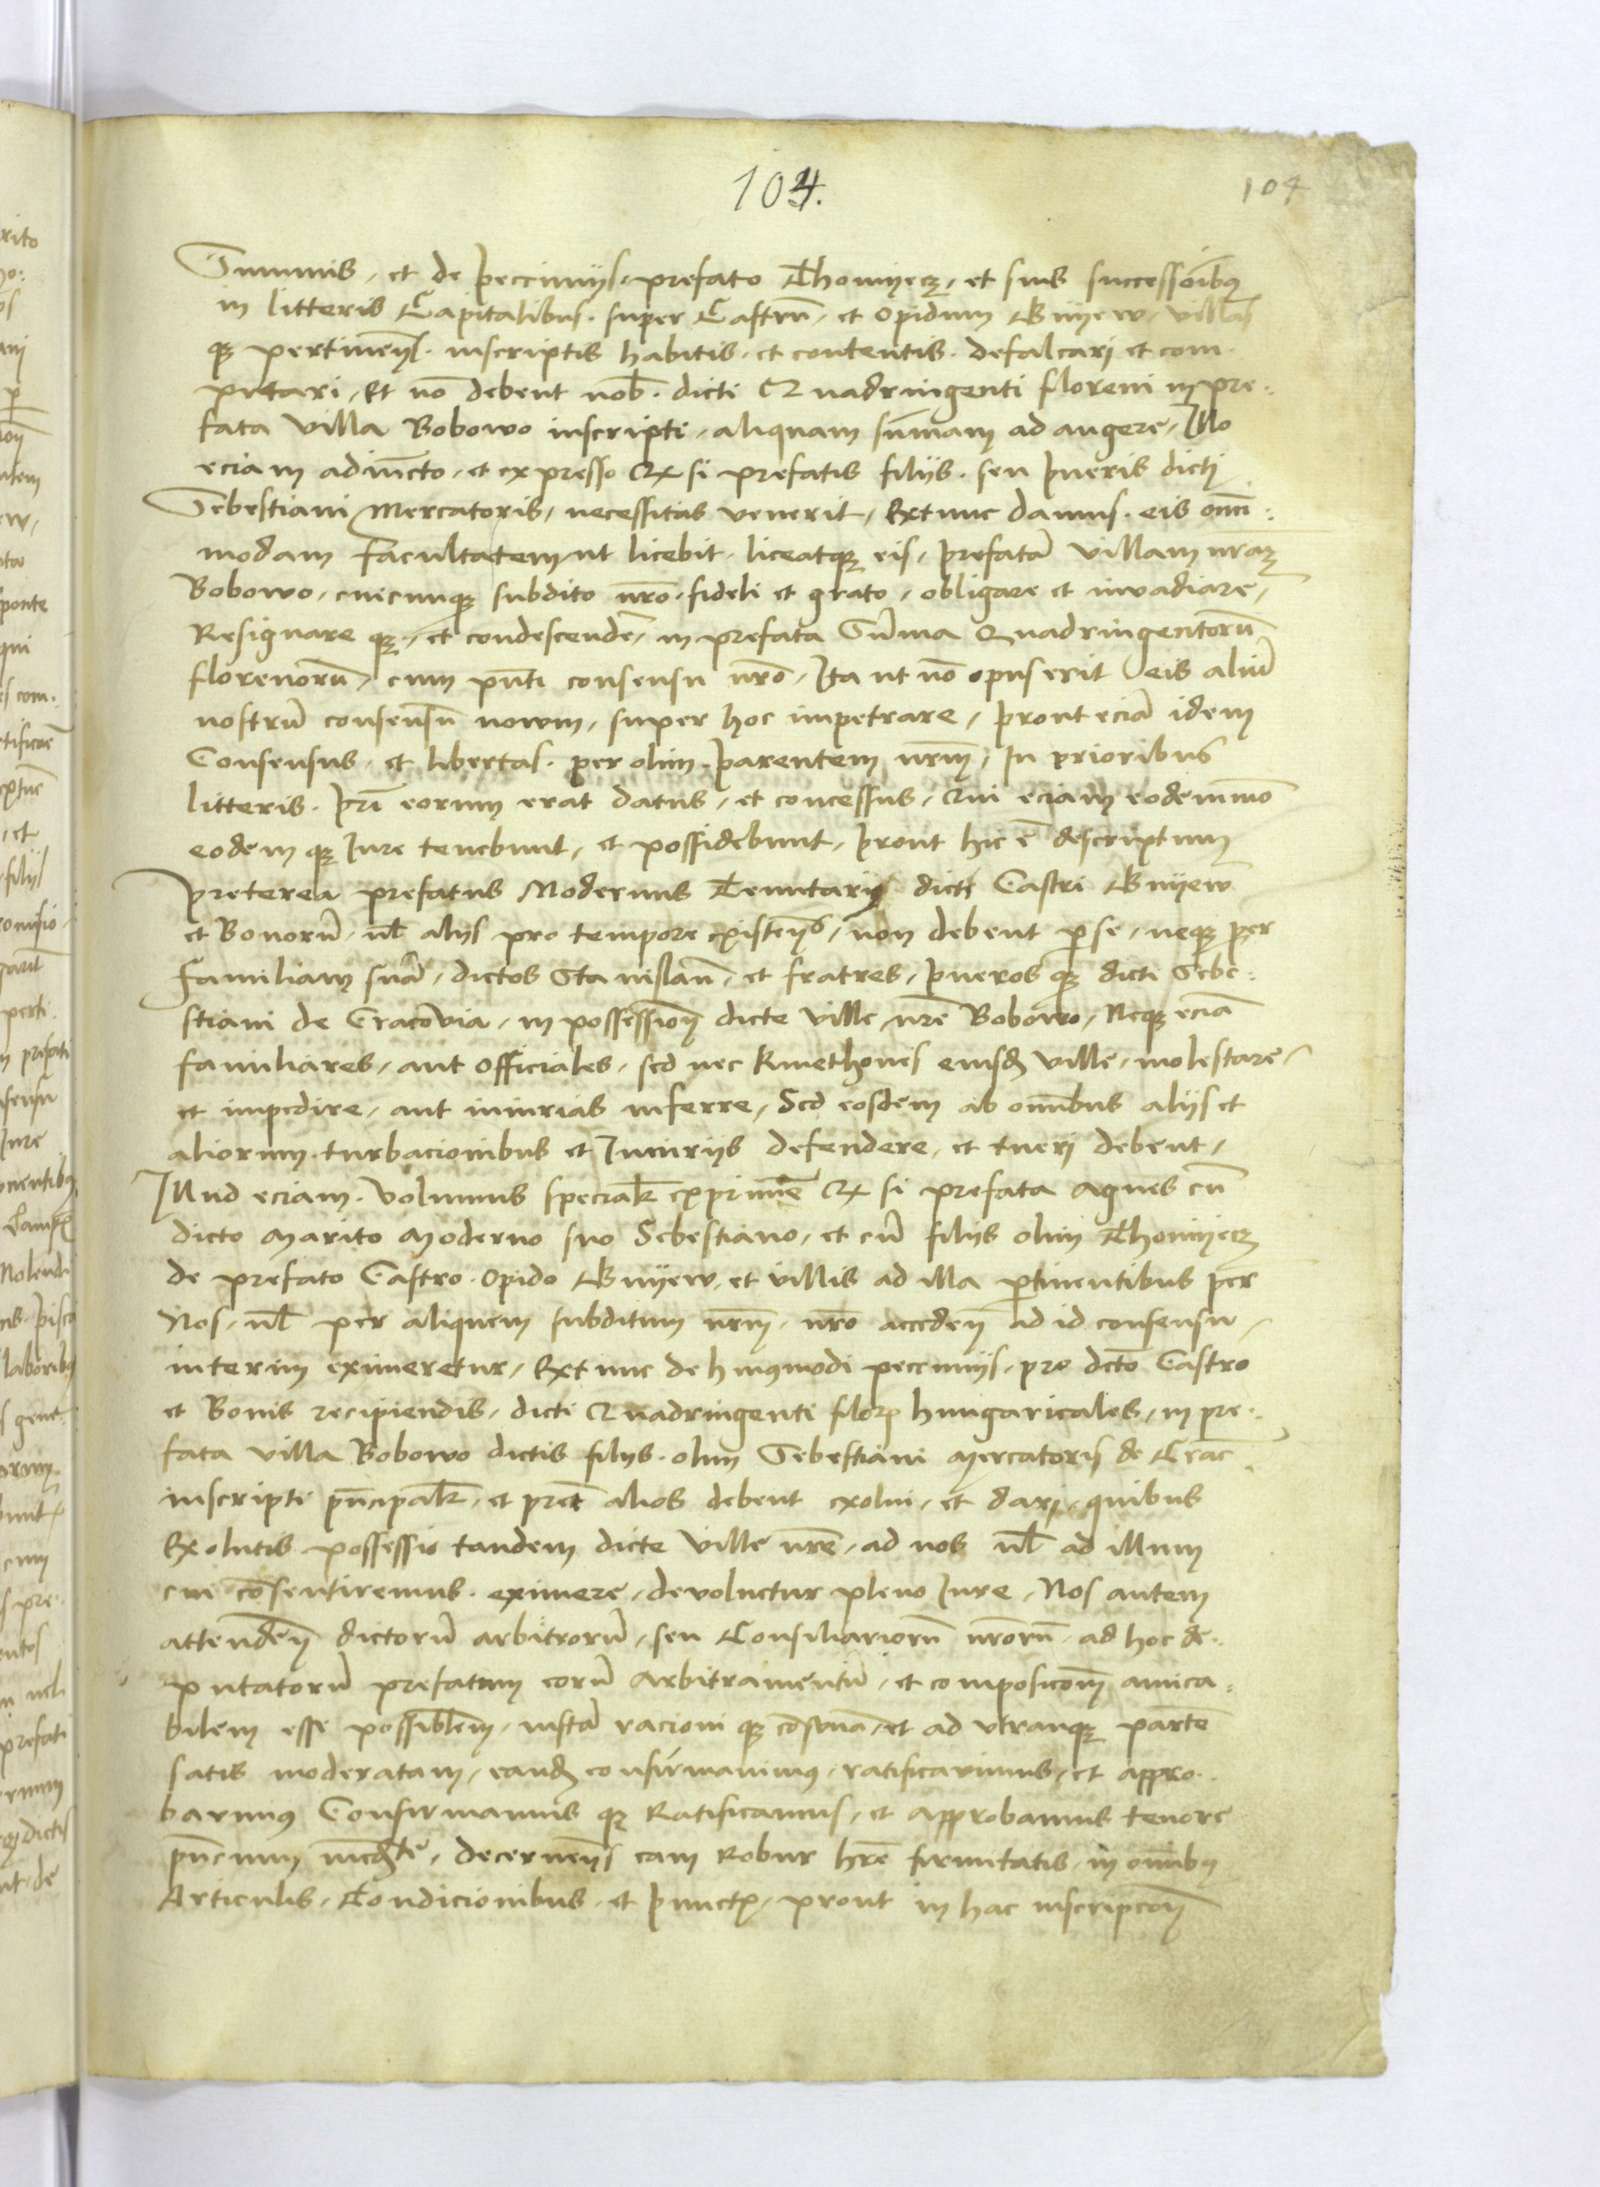 104.
104
Summis, et de peccunijs, prefato Thomyecz, et suis successoribus
in litteris Capitalibus. super Castrum, et Opidum Gnyew, villas
que pertinen̄s. inscriptis habitis. et contentis. defalcari et com-
putari, Et nō debent nob̄. dicti Quadringenti floreni in pre-
fata villa Bobowo inscripti, aliquam sum̄am ad augere, Illo
eciam adiuncto, et expresso Qz si prefatis filijs. seu pueris dicti
Sebestiani Mercatoris, necessitas venerit, Extunc damus. eis omni-
modam facultatem ut licebit. liceatque eis, prefatā villam nrām
Bobowo, cuicunque subdito nrō. fideli et grato, obligare et invadiare,
Resignare que, et condescendē, in prefata Sum̄a Quadringentorū
florenorū, cum pn̄ti consensu nrō, Ita ut nō opus erit eis aliū
nostrū consensū nowm, super hoc impetrare, prout eciā idem
Consensus, et libertas. per olim parentem nrm̄, In prioribus
litteris. pri eorum erat datus, et concessus, Qui eciam eodem mō
eodem que Iure tenebunt, et possidebunt, prout hic ē descriptum
Preterea prefatus Modernus Tenutarius dicti Castri Gnyew
et Bonorū, nl̄ alijs pro tempore existen̄s, non debent per se, neque per
familiam suā, dictos Stanislaū, et fratres, pueros que dicti Sebe-
stiani de Cracovia, in possessionē dicte ville nrē Bobowo, Neque eciā
familiares, aut Officiales, sed nec Kmethones eiusd̄ ville, molestare,
et impedire, aut iniurias inferre, Sed eosdem ab omnibus alijs et
aliorum turbacionibus et Iniurijs defendere, et tueri debent,
Illud eciam. volumus specialr̄ exprimē Qz si prefata Agnes cū
dicto Marito Moderno suo Sebestiano, et cū filijs olim Thomyecz
de prefato Castro. Opido Gnyew, et villis ad illa pertinentibus per
Nos, nl̄ per aliquem subditum nrm̄, nrō acceden̄ ad id consensu,
interim eximeretur, Extunc de huiusmodi peccunijs, pro dictō Castro
et Bonis recipiendis, dicti Quadringenti floren hungaricales, in pre-
fata villa Bobowo dictis filijs. olim Sebestiani Mercatoris de Crac̄.
inscripti pn̄cipalr̄, et pret̄ alios debent exolui, et dari, quibus
Exolutis possessio tandem dicte ville nrē, ad nos nl̄ ad illum
cui cōsentiremus. eximere, devoluetur pleno Iure, Nos autem
attenden̄ dictorū arbitrorū, seu Consiliariorū nrōrū, ad hoc de-
putatorū prefatum eorū Arbitramentū, et composicōm̄ amica-
bilem esse possiblēm, iustā racioni que cōsonā, et ad utranque partē
satis moderatam, eand̄ confirmavimus, ratificavimus, et appro-
bavimus Confirmamus que Ratificamus, et approbamus tenore
pn̄cium mediantē, decernen̄s eam Robur hr̄e firmitatis, in omnibus
Articulis, Condicionibus, et punctis, prout in hac inscripcōn̄